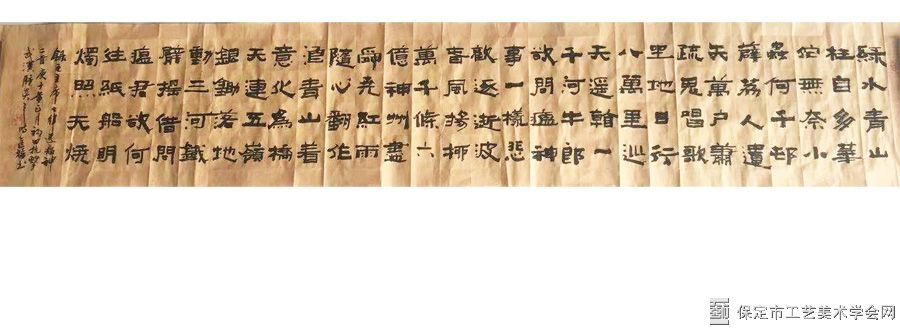 綠水青山
枉自多華
佗無奈小
蟲何千邨
薜荔人遺
矢萬户蕭
疏鬼唱歌
坐地日行
八萬里巡
天遥看一
千河牛郎
欲問瘟神
事一樣悲
歡逐逝波
春風楊柳
萬千條六
億神州盡
舜堯紅雨
隨心翻作
浪青山着
意化為橋
天連五嶺
銀鋤落地
動三河鐵
臂摇借問
瘟君欲何
往紙船明
燭照天燒
録毛主席七律送瘟神
二首庚子年正月初四抗擊
武漢肺炎
保定市工艺美术学会网